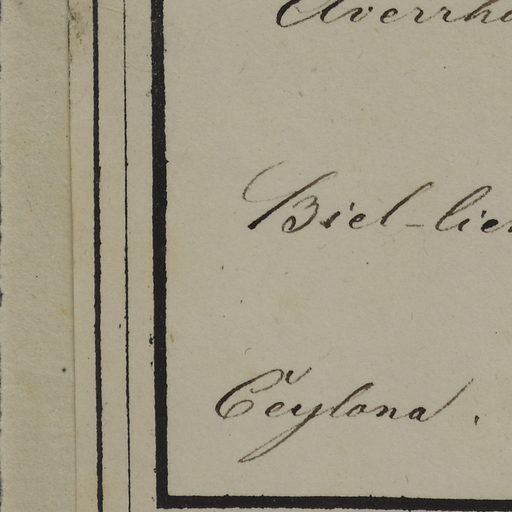 Averrho
Biel-lie
Ceylona.